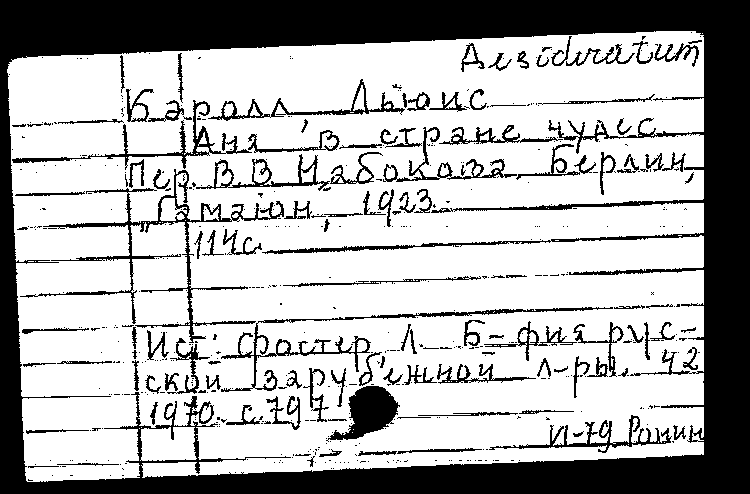 Desideratum
Каролл, Льюис
Аня в стране чудес.
Пер. В.В. Набокова. Берлин,
„Гамаюн", 1923.
114с.
Ист: Фостер Л. Б-фия рус-
ской зарубежной л-ры. Ч2
1970. с.797
VI-79 Ронин